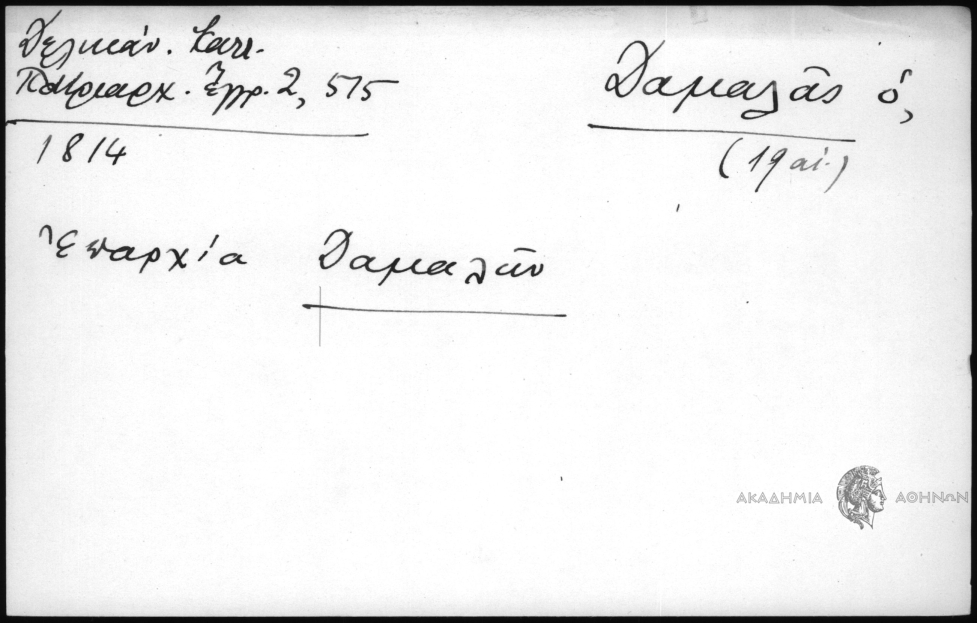 Δελικάν. Καλλ.
Πατριαρχ. Ἔγγρ. 2, 575
1814
Δαμαλᾶς ὁ,
(19 αἰ.)
Ἐπαρχία Δαμαλῶν
ΑΚΑΔΗΜΙΑ ΑΘΗΝΩΝ